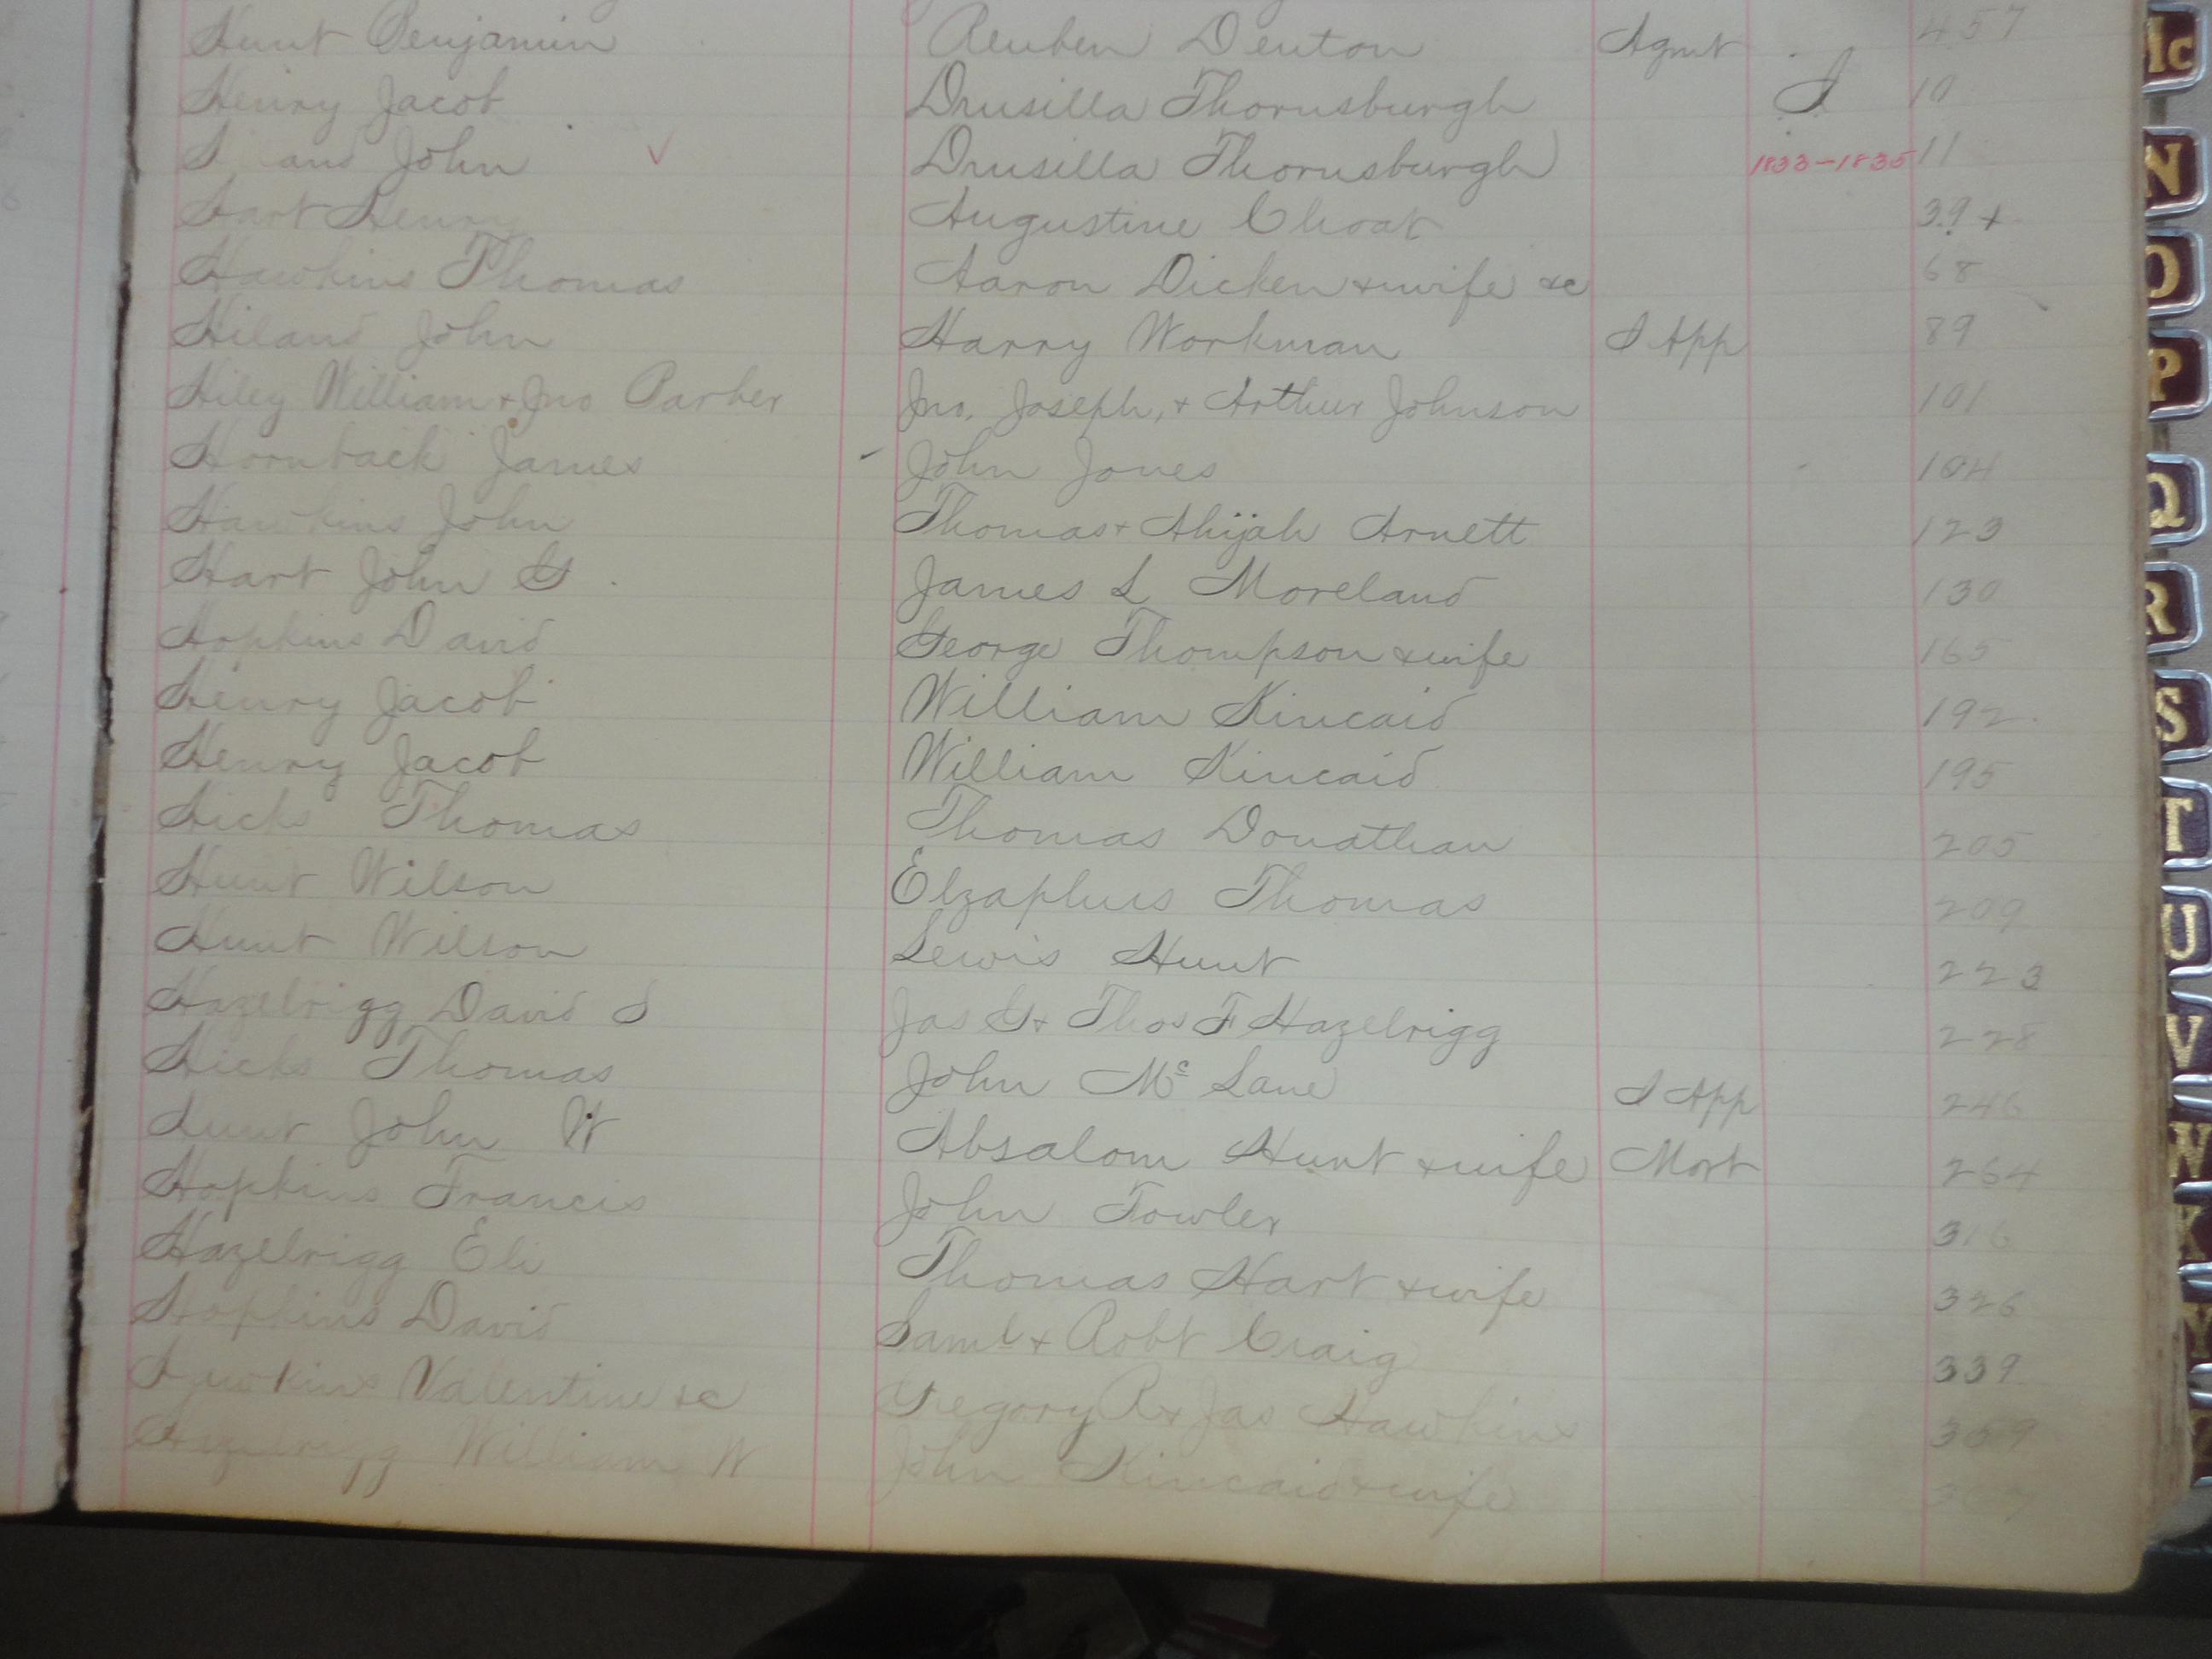 Hunt Benjamin Reuben Denton Agmt 457
Henry Jacob Drusilla Thornsburgh I 10
and John ✓ Drusilla Thornsburgh 1833-1835 11
Hart Henry Augustine Choat 39 +
Hawkins Thomas Aaron Dicken & wife &c 68
Hiland John Harry Workman I App 89
Hiley William & Jno Parker Jno, Joseph, & Arthur Johnson 101
Hornback James John Jones 104
Hawkins John Thomas & Abijah Arnett 123
Hart John G James L Moreland 130
Hopkins David George Thompson & wife 165
Henry Jacob William Kincaid 192
Henry Jacob William Kincaid 195
Hicks Thomas Thomas Donathan 205
Hunt Wilson Elzaphus Thomas 209
Hunt Wilson Lewis Hunt 223
Hazelrigg David S Jas G & Thos F Hazelrigg 228
Hicks Thomas John Mc Lane I App 246
Hunt John W Absalom Hunt & wife Mort 264
Hopkins Francis John Fowler 316
Hazelrigg Eli Thomas Hart & wife 326
Hopkins David Saml & Robt Craig 339
Hawkins Valentine &c Gregory R & Jas Hawkins 359
Hazelrigg William W John Kincaid & wife
Mc
N
O
P
Q
R
S
T
U
V
W
X
Y